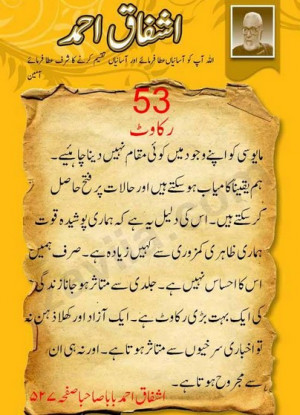 اشفاق احمد
اللہ آپ کو آسانیاں عطا فرمائے اور آسانیاں تقسیم کرنے کا شرف عطا فرمائے
آمین
53
رکاوٹ
مایوسی کو اپنے وجود میں کوئی مقام نہیں دینا چاہئیے۔
ہم یقیناً کامیاب ہو سکتے ہیں اور حالات پر فتح حاصل
کر سکتے ہیں۔ اس کی دلیل یہ ہے کہ ہماری پوشیدہ قوت
ہماری ظاہری کمزوری سے کہیں زیادہ ہے۔ صرف ہمیں
اس کا احساس نہیں ہے۔ جلدی سے متاثر ہو جانا زندگی
کی ایک بہت بڑی رکاوٹ ہے۔ ایک آزاد اور کھلا ذہن نہ
تو اخباری سرخیوں سے متاثر ہوتا ہے۔ اور نہ ہی ان
سے مجروح ہوتا ہے۔
اشفاق احمد بابا صاحبا صفحہ ۵۲۷